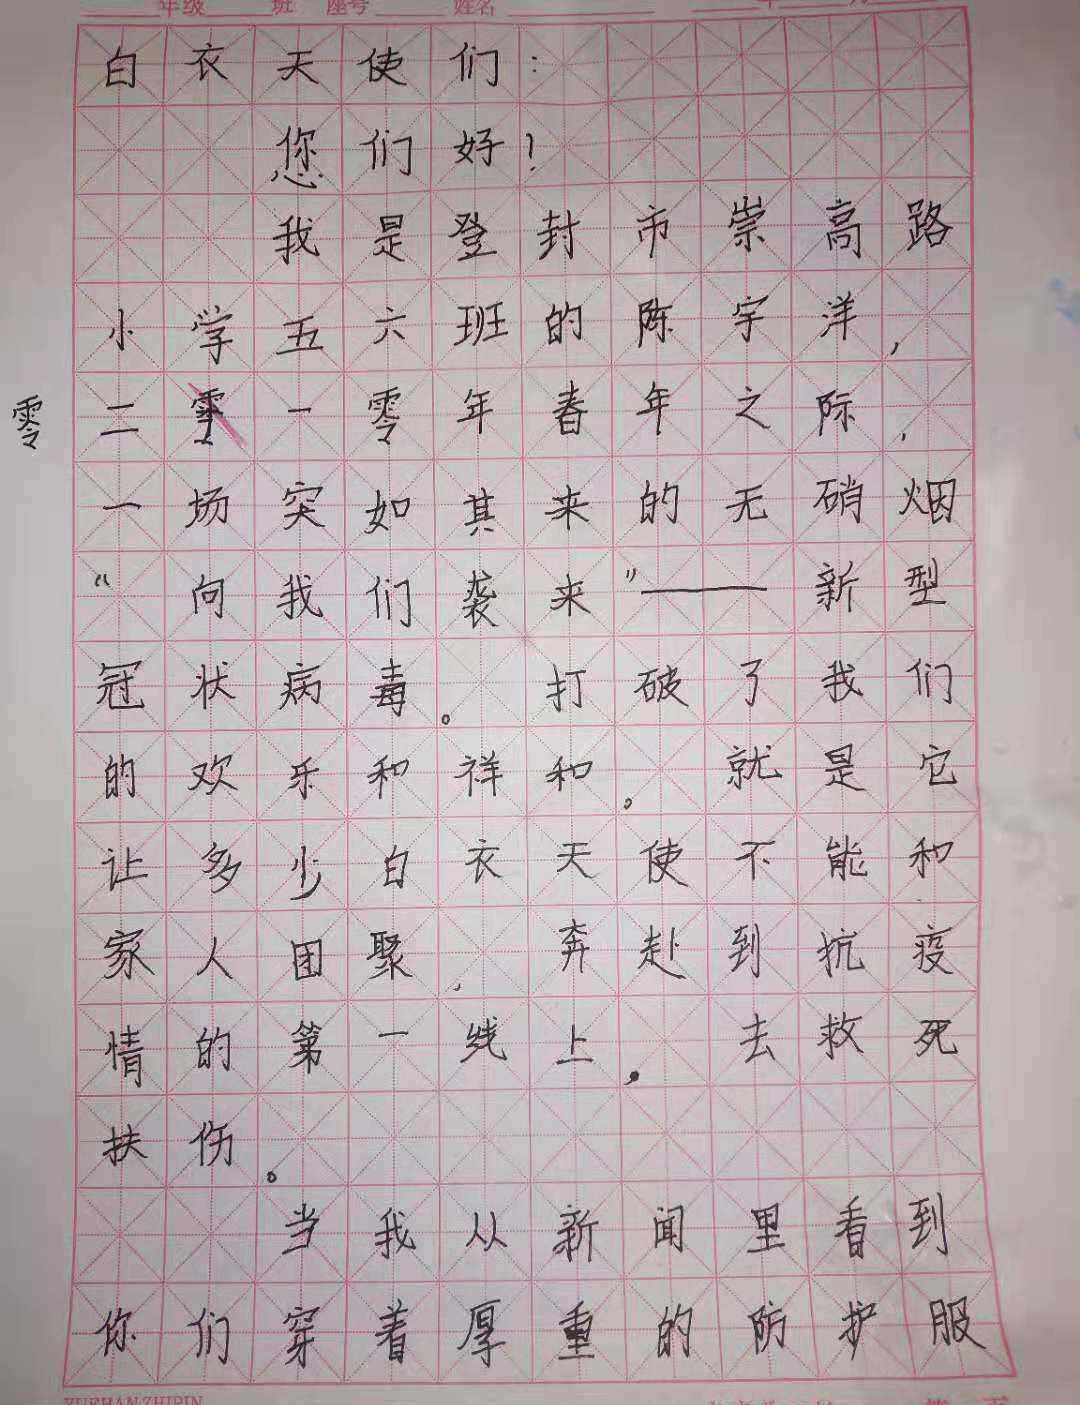 年级 班 座号 姓名
白衣天使们:
您们好!
我是登封市崇高路
小学五六班的陈宇洋,
零
二零一零年春年之际,
一场突如其来的无硝烟
“向我们袭来”——新型
冠状病毒。打破了我们
的欢乐和祥和。就是它
让多少白衣天使不能和
家人团聚,奔赴到抗疫
情的第一线上,去救死
扶伤。
当我从新闻里看到
你们穿着厚重的防护服
YUEHAN·ZHIPIN